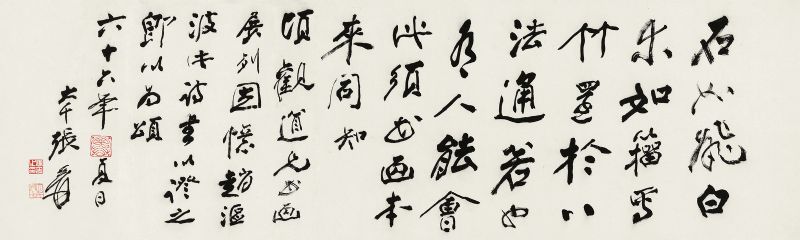 石如飛白
木如籀寫
竹還於八
法通若也
有人能會
此須書畫本
來同知
頃觀道兄書畫
展列因憶趙漚
波此詩書以證之
即以為頌
六十六年夏日
大千張爰